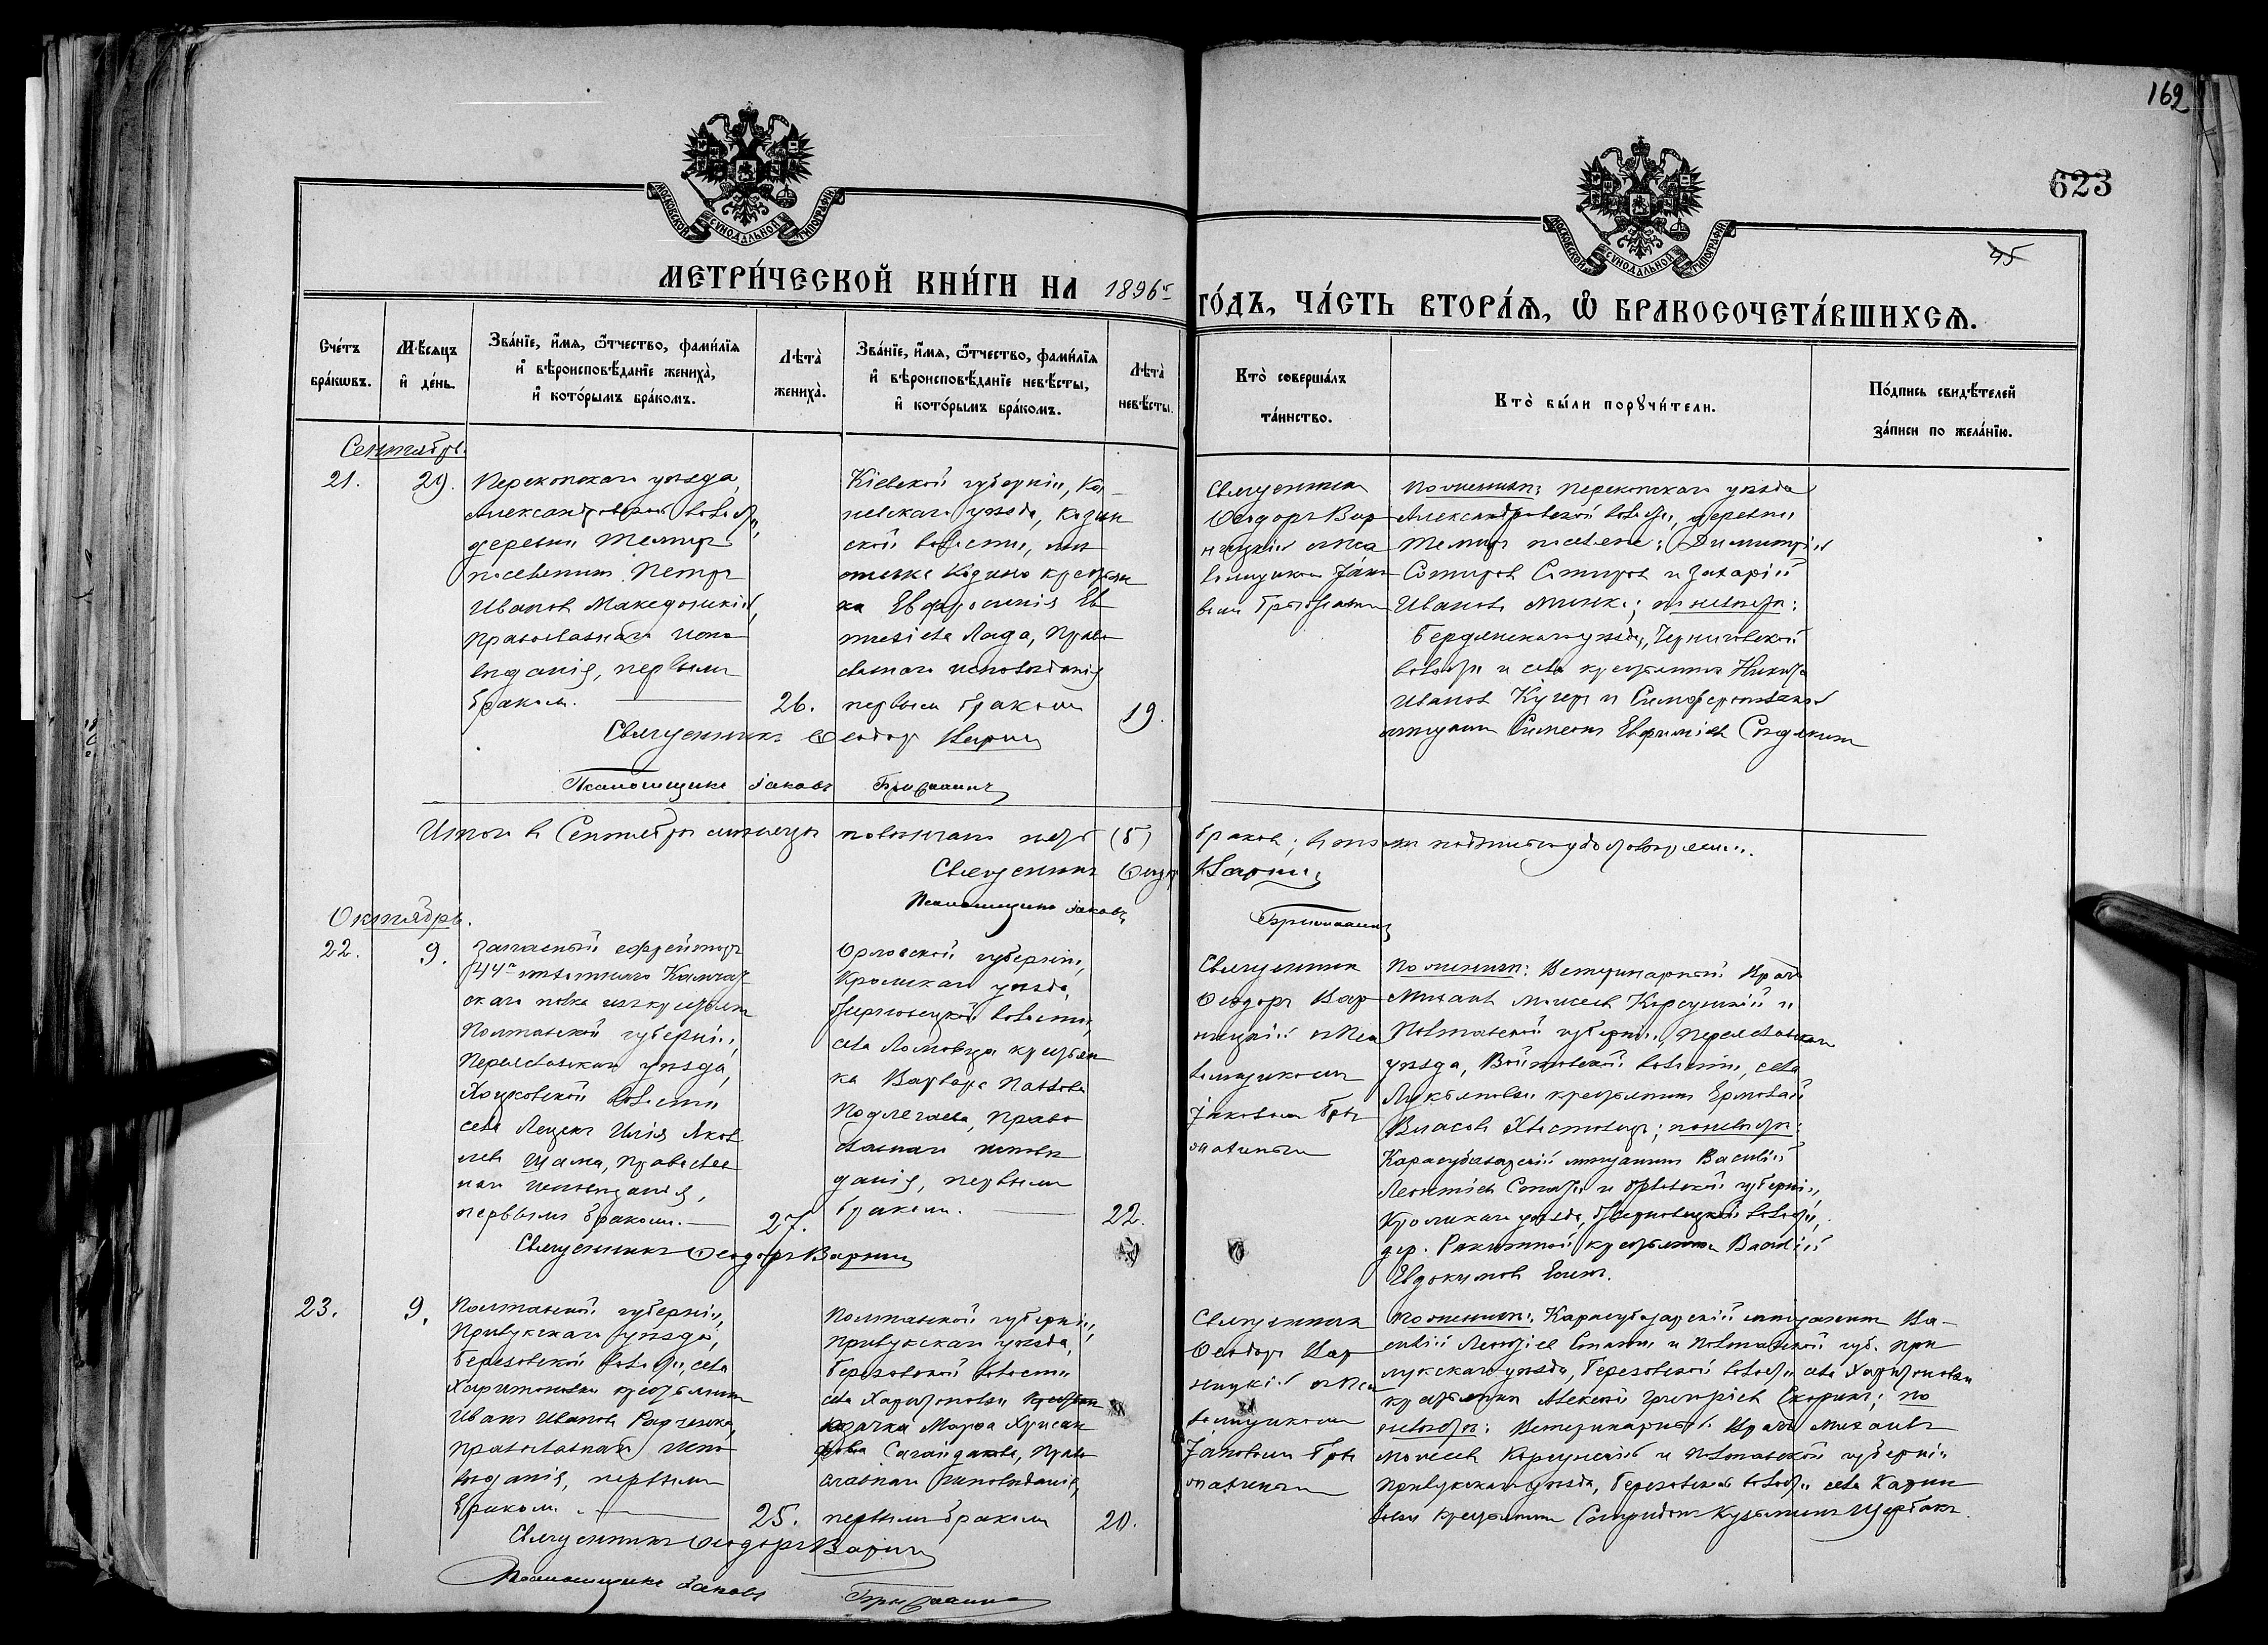 162
623
45
МОСКОВСКОЙ СѴНОДАЛЬНОЙ ТИПОГРАФІИ
МОСКОВСКОЙ СѴНОДАЛЬНОЙ ТИПОГРАФІИ
МЕТРИ́ЧЕСКОЙ КНИ́ГИ НА 1896й
ГО́ДЪ, ЧА́СТЬ ВТОРА́Ѧ, Ѽ БРАКОСОЧЕТА́ВШИХСѦ.
Сче́тъ бра́кѡвъ.
Мѣ́сѧцъ и҆ де́нь.
Зва́нїе, и҆́мѧ, ѻ҆́тчество, фами́лїѧ и҆ вѣроисповѣ́данїе жениха̀, и҆ кото́рымъ бра́комъ.
Лѣта̀ жениха̀.
Зва́нїе, и҆́мѧ, ѻ҆́тчество, фами́лїѧ и҆ вѣроисповѣ́данїе невѣ́сты, и҆ кото́рымъ бра́комъ.
Лѣта̀ невѣ́сты.
Кто̀ соверша́лъ та́инство.
Кто̀ бы́ли порꙋчи́тели.
По́дпись свидѣ́телей за́писи по жела́нїю.
Сентябрь.
21.
29.
Перекопскаго уѣзда,
Александровской волости,
деревни Темиръ
поселянинъ Петръ
Ивановъ Македонскій,
православнаго испо-
вѣданія, первымъ
бракомъ.
26.
Кіевской губерніи, Ка-
невскаго уѣзда, Кодин
ской волости, мѣ
стечка Кодина крестьян
ка Евфросинія Ев
Лада, право
славнаго исповѣданія
первымъ бракомъ
19.
Священникъ
Ѳеодоръ Вар
ницкій съ Пса
ломщикомъ Іако
вомъ
По женихѣ: Перекопскаго уѣзда
Александровской волости, деревни
Темиръ поселяне: Димитрій
Сотировъ Сотировъ и Захарій
Ивановъ Минко; по невѣстѣ:
Бердянскаго уѣзда, Черниговской
волости и села крестьянинъ Никита
Ивановъ Кучеръ и Симферопольскій
мѣщанинъ Симеонъ Евфиміевъ
Священникъ Ѳеодоръ
Псаломщикъ Іаковъ
Итого въ Сентябрѣ мѣсяцѣ повѣнчано пять (5)
браковъ;
Священникъ Ѳеодоръ
Псаломщикъ Іаковъ
Октябрь.
22.
9.
Запасный ефрейторъ
44го пѣхотнаго Камчат
скаго полка изъ крестьянъ
Полтавской губерніи,
Переяславскаго уѣзда,
Хоцковской волости
села Лецекъ Илія Яков
левъ Шама, православ
наго исповѣданія,
первымъ бракомъ.
27.
Орловской губерніи,
Кромскаго уѣзда,
волости,
села Ломовца крестьян
ка Варвара Павлова
Подлегаева, право
славнаго исповѣ
данія, первымъ
бракомъ.
22.
Священникъ
Ѳеодоръ Вар
ницкій съ Пса
ломщикомъ
Іаковомъ
По женихѣ: Ветеринарный Врачъ
Михаилъ Моисеевъ Корсунскій и
Полтавской губерніи, Переяславскаго
уѣзда, Войтовской волости, села
Лукьяновки крестьянинъ Ермолай
Власовъ; по невѣстѣ:
Карасубазарскій мѣщанинъ Василій
Леонтіевъ и Орловской губерніи,
Кромскаго уѣзда, волости,
дер. Ракитной крестьянинъ Василій
Евдокимовъ
Священникъ Ѳеодоръ
23.
9.
Полтавской губерніи,
Прилукскаго уѣзда,
Березовской волости, села
Харитоновки крестьянинъ
Иванъ Ивановъ
православнаго испо
вѣданія, первымъ
бракомъ.
25.
Полтавской губерніи,
Прилукскаго уѣзда,
Березовской волости
села Харитоновки
казачка Марѳа Хрисан
ѳова Сагайдакова, право
славнаго исповѣданія,
первымъ бракомъ
20.
Священникъ
Ѳеодоръ Вар
ницкій съ Пса
ломщикомъ
Іаковомъ
По женихѣ: Карасубазарскій мѣщанинъ Ва-
силій Леонтіевъ и Полтавской губ. При
лукскаго уѣзда, Березовской волости села Харитоновки
крестьянинъ Алексѣй Григоріевъ Скорикъ; по
невѣстѣ: Ветеринарный Врачъ Михаилъ
Моисеевъ Корсунскій и Полтавской губерніи
Прилукскаго уѣзда, Березовской волости села
крестьянинъ Спиридонъ Кузьминъ Щербакъ.
Священникъ Ѳеодоръ
Псаломщикъ Іаковъ